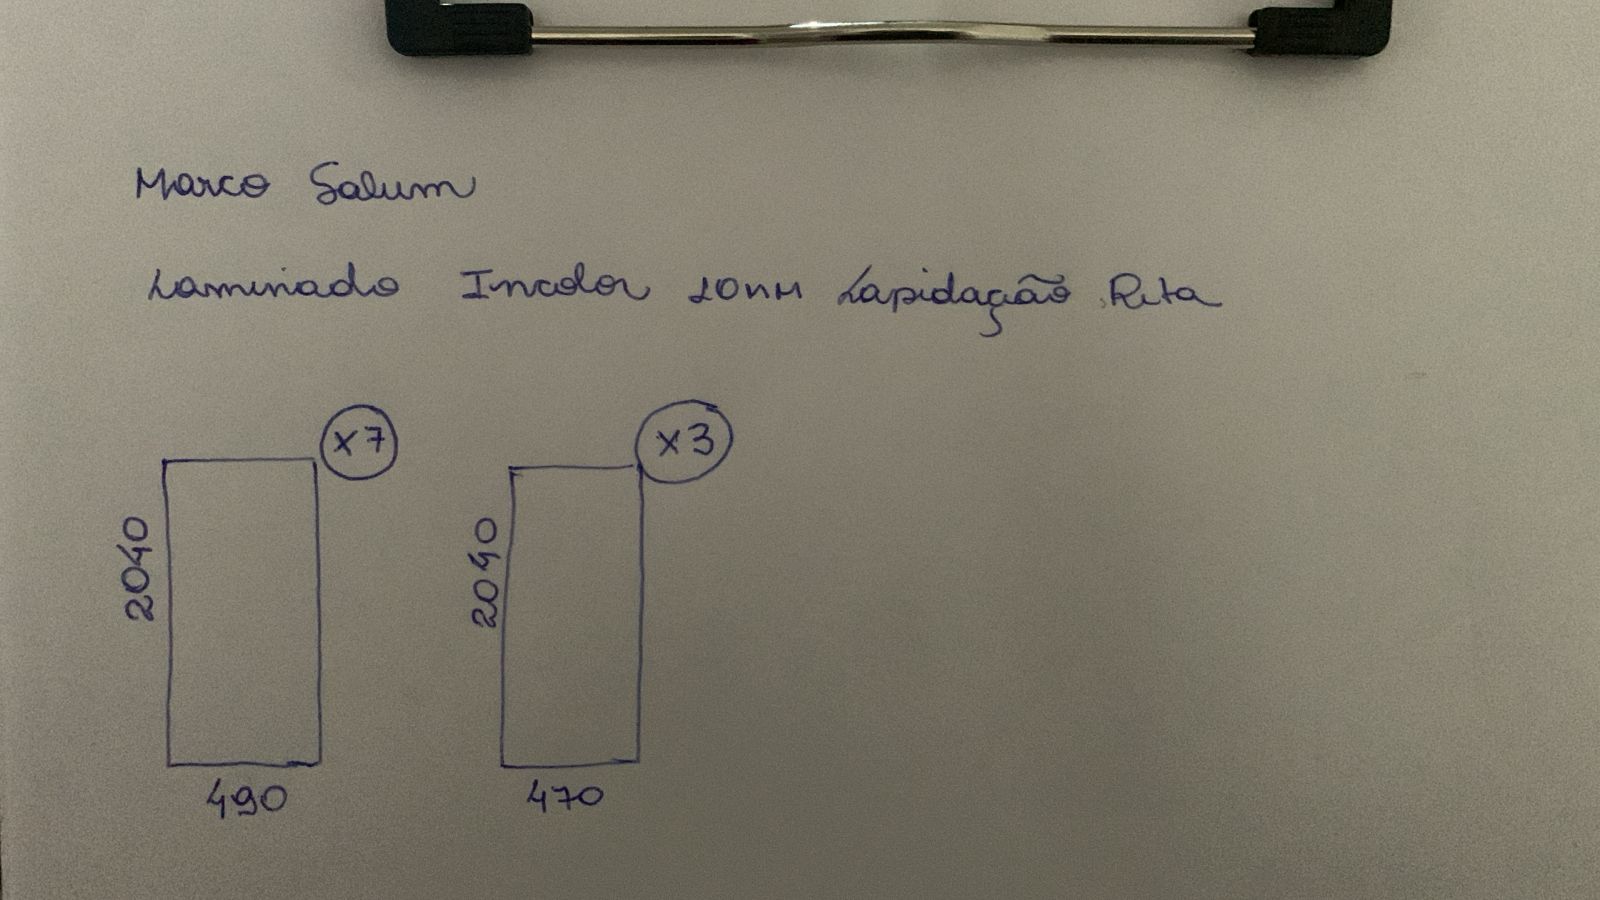 Marco Salum
Laminado Incolor 10mm Lapidação Reta
x7
x3
2040
2040
490
470